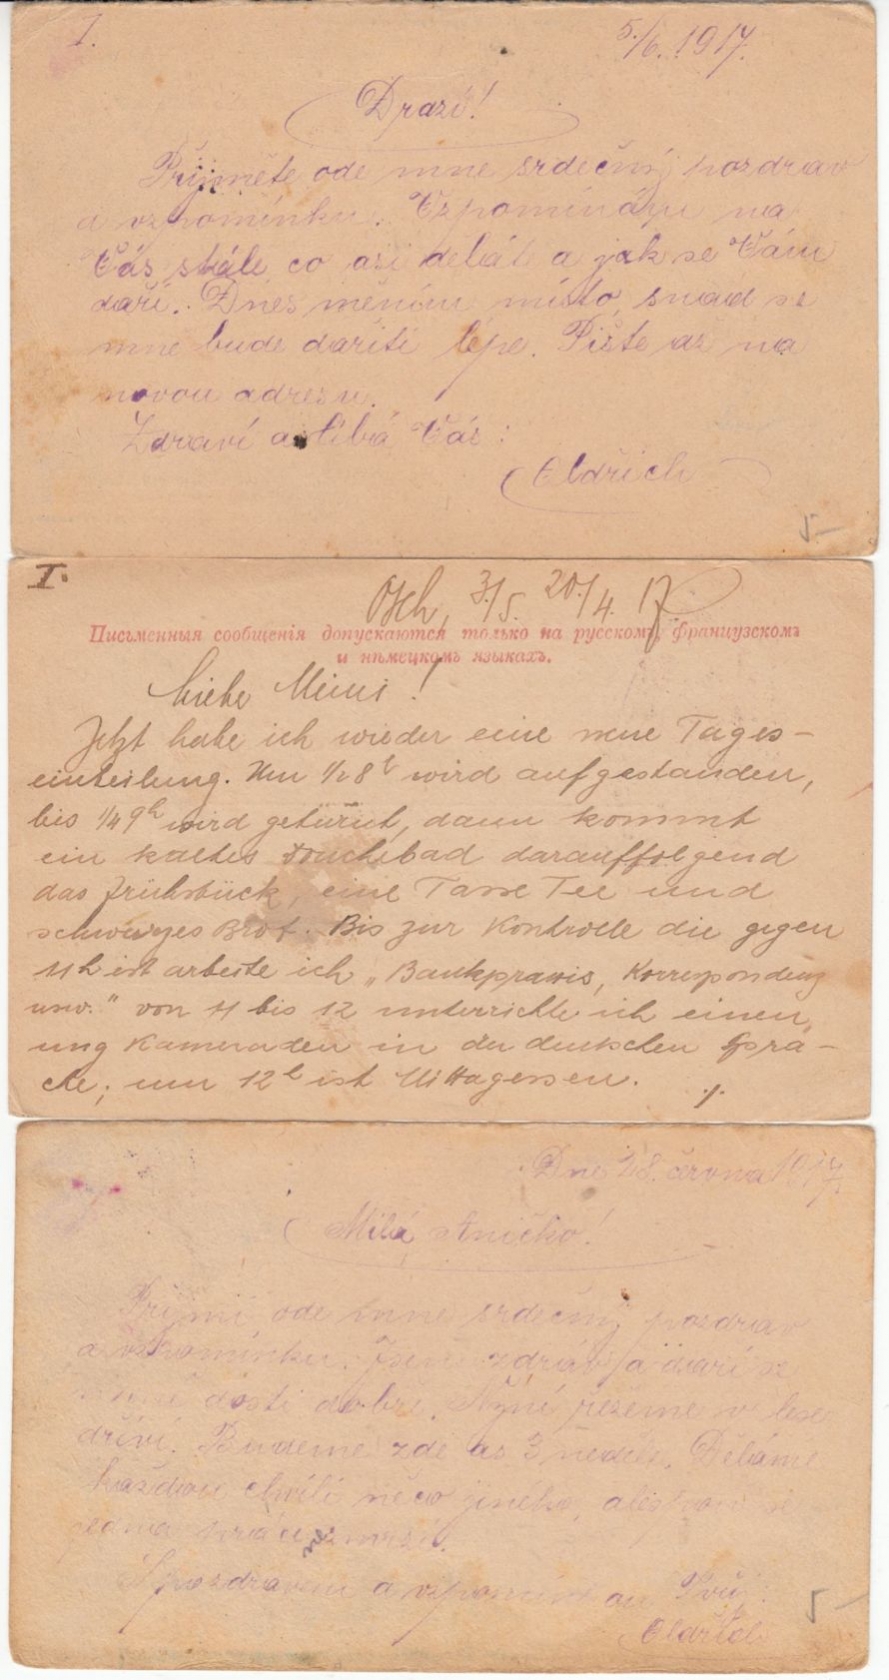 I.
5./6. 1917.
Drazí!
Přijměte ode mne srdečný pozdrav
a vzpomínku. Vzpomínám na
Vás stále co asi děláte a jak se Vám
daří. Dnes měním místo, snad se
mne bude dařiti lépe. Pište až na
novou adresu.
Zdraví a líbá Vás:
Oldřich
5–
I.
3./5. 20./4. 17
Письменныя сообщенія допускаются только на русскомъ, французскомъ
и нѣмецкомъ языкахъ.
Liebe Mimi!
Jetzt habe ich wieder eine neue Tages-
einteilung. Um 1/2 8h wird aufgestanden,
bis 1/4 9h wird geturnt, dann kommt
ein kaltes Douchebad darauffolgend
das Frühstück, eine Tasse Tee und
schwarzes Brot. Bis zur Kontrolle die gegen
11h ist arbeite ich „Bankpraxis, Korrespondenz
usw." von 11 bis 12 unterrichte ich einen
ung Kameraden in der deutschen Spra-
che; um 12h ist Mittagessen.
./.
Dne 28. června 1917.
Milá Aničko!
Přijmi ode mne srdečný pozdrav
a vzpomínku. Jsem zdráv a daří se
mně dosti dobře. Nyní řežeme v lese
dříví. Budeme zde as 3 neděle. Děláme
každou chvíli něco jiného, alespoň se
jedna práce nezmrzí.
S pozdravem a vzpomínkou Tvůj:
5–